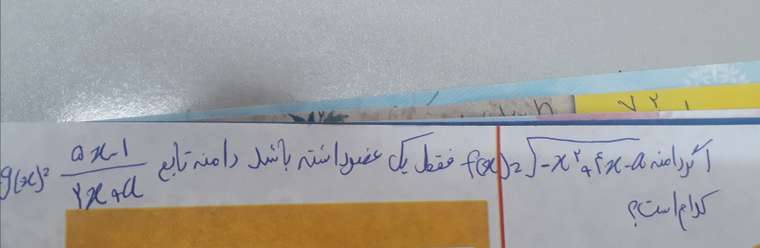 اگر دامنه f(x)=√(-x²+4x-a) فقط یک عضو داشته باشد دامنه تابع g(x)=(5x-1)/(2x+a)
کدام است؟
721